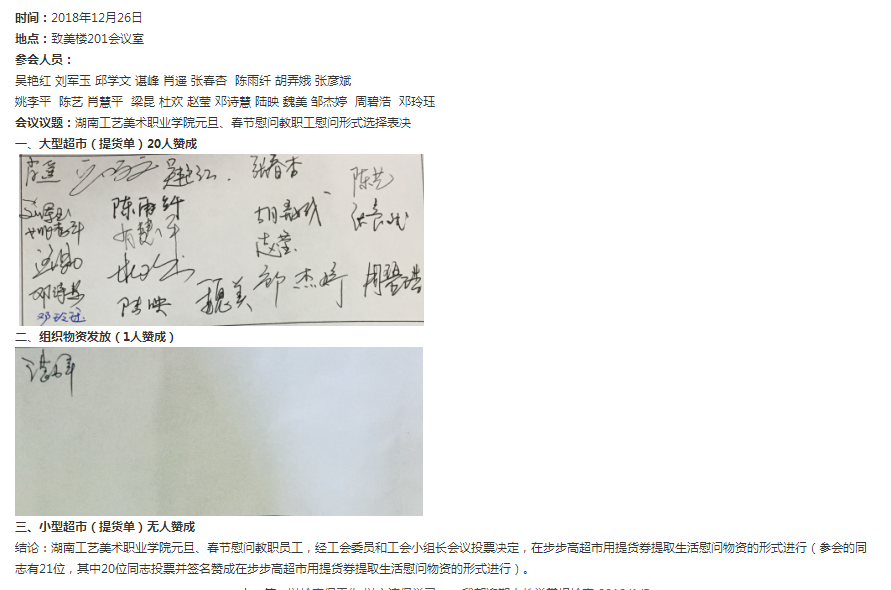 时间：2018年12月26日
地点：致美楼201会议室
参会人员：
吴艳红 刘军玉 邱学文 谌峰 肖遥 张春杏 陈雨纤 胡弄娥 张彦斌
姚李平 陈艺 肖慧平 梁昆 杜欢 赵莹 邓诗慧 陆映 魏美 邹杰婷 周碧浩 邓玲珏
会议议题：湖南工艺美术职业学院元旦、春节慰问教职工慰问形式选择表决
一、大型超市（提货单）20人赞成
肖遥 吴艳红 张春杏 陈艺
陈雨纤 胡弄娥
肖慧平 赵莹
邓诗慧 陆映 魏美 邹杰婷
邓玲珏
二、组织物资发放（1人赞成）
谌峰
三、小型超市（提货单）无人赞成
结论：湖南工艺美术职业学院元旦、春节慰问教职员工，经工会委员和工会小组长会议投票决定，在步步高超市用提货券提取生活慰问物资的形式进行（参会的同
志有21位，其中20位同志投票并签名赞成在步步高超市用提货券提取生活慰问物资的形式进行）。